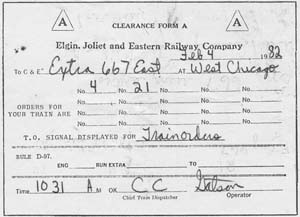 A CLEARANCE FORM A A
Elgin, Joliet and Eastern Railway Company
Feb 4 1982
To C & E Extra 667 East AT West Chicago
No. 4 No. 21 No. No. No.
ORDERS FOR YOUR TRAIN ARE
No. No. No. No. No.
No. No. No. No. No.
T. O. SIGNAL DISPLAYED FOR Trainorders
RULE D-97.
ENG RUN EXTRA TO
Time 10 31 A M OK C C C Watson
Chief Train Dispatcher Operator